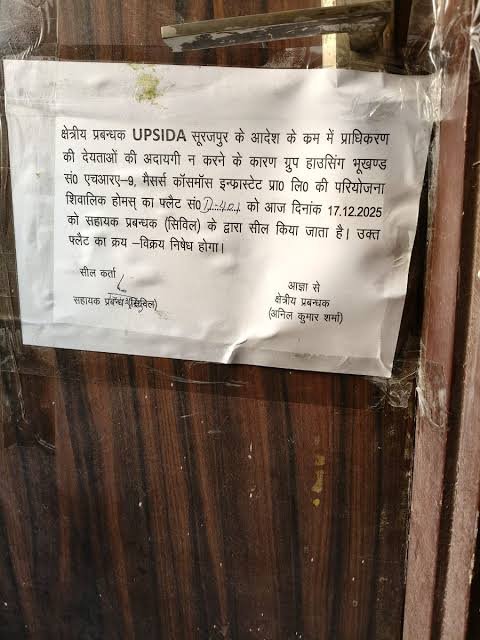 क्षेत्रीय प्रबन्धक UPSIDA सूरजपुर के आदेश के कम में प्राधिकरण
की देयताओं की अदायगी न करने के कारण ग्रुप हाउसिंग भूखण्ड
सं0 एचआरए-9, मैसर्स कॉसमॉस इन्फ्रास्टेट प्रा0 लि0 की परियोजना
शिवालिक होमस् का फ्लैट सं0 को आज दिनांक 17.12.2025
को सहायक प्रबन्धक (सिविल) के द्वारा सील किया जाता है। उक्त
फ्लैट का क्रय –विक्रय निषेध होगा।
सील कर्ता
सहायक प्रबन्धक (सिविल)
आज्ञा से
क्षेत्रीय प्रबन्धक
(अनिल कुमार शर्मा)